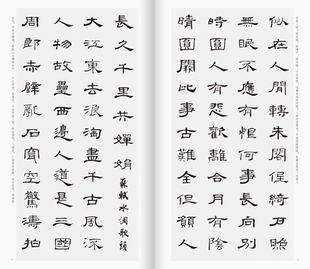 似在人間轉朱閣低綺戶照
無眠不應有恨何事長向別
時圓人有悲歡離合月有陰
晴圓闕此事古難全但願人
長久千里共嬋娟 蘇軾水調歌頭
大江東去浪淘盡千古風流
人物故壘西邊人道是三國
周郎赤壁亂石穿空驚濤拍